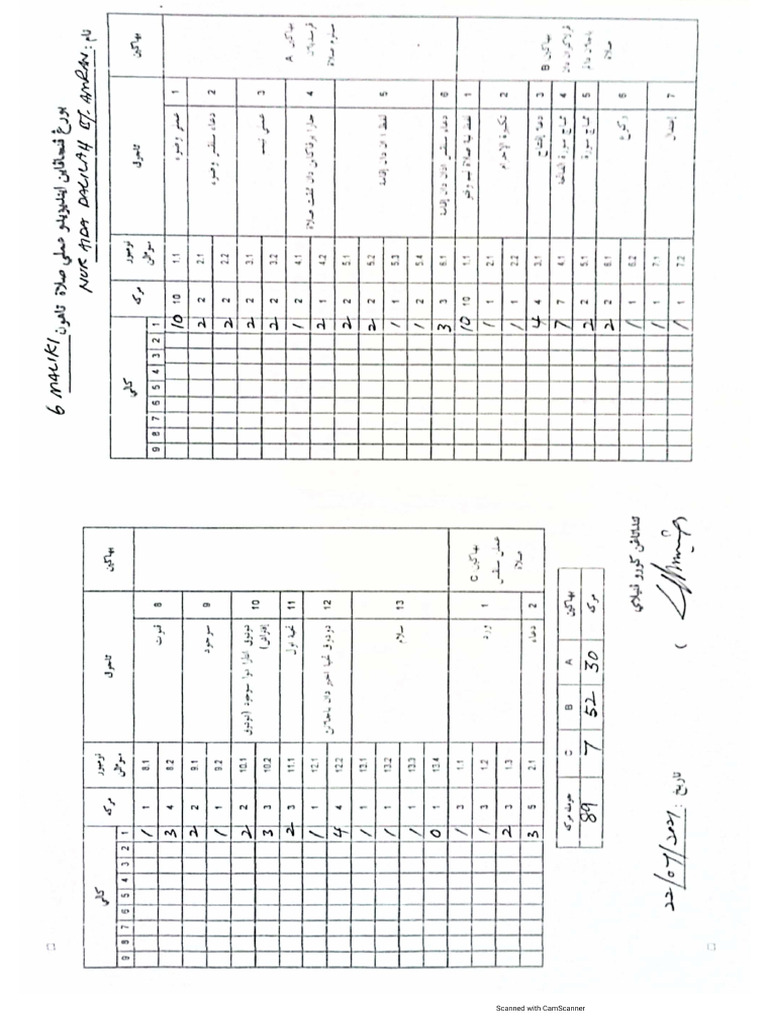 بورڠ فنچاڤاين اينديۏيدو عملي صلاة تاهون 6 MALIKI
نام : NUR AIDA DALILAH BT. AMRAN
بهاڬين تاجوق نومبور سوءالن مركه كالي
1 2 3 4 5 6 7 8 9
بهاڬين A
1 عملي وضوء 1.1 10 10
2 دعاء سلفس وضوء 2.1 2 2
2.2 2 2
3 3.1 2 2
3.2 2 2
4 4.1 2 1
4.2 1 2
5 لفظ اذان دان إقامة 5.1 2 2
5.2 2 2
5.3 1 1
5.4 2 1
6 دعاء سلفس اذان دان إقامة 6.1 3 3
بهاڬين B
1 1.1 10 10
2 تكبيرة الإحرام 2.1 1 1
2.2 1 1
3 دعاء إفتتاح 3.1 4 4
4 سورة الفاتحة 4.1 7 7
5 سورة 5.1 2 2
6 ركوع 6.1 2 2
6.2 1 1
7 إعتدال 7.1 1 1
7.2 1 1
بهاڬين تاجوق نومبور سوءالن مركه كالي
1 2 3 4 5 6 7 8 9
8 قنوت 8.1 1 1
8.2 4 3
9 سوجود 9.1 2 2
9.2 1 1
10 دودوق انتارا دوا سوجود 10.1 2 2
10.2 3 3
11 11.1 3 2
12 12.1 1 1
12.2 4 4
13 سلام 13.1 1 1
13.2 1 1
13.3 1 1
13.4 1 0
بهاڬين C عملي سلفس صلاة
1 ورد 1.1 3 1
1.2 3 1
1.3 3 2
2 دعاء 2.1 5 3
بهاڬين A B C جومله مركه
مركه 30 52 7 89
تندتاڠن ڬورو ڤنيلاي
(
تاريخ : 22/07/2021
Scanned with CamScanner